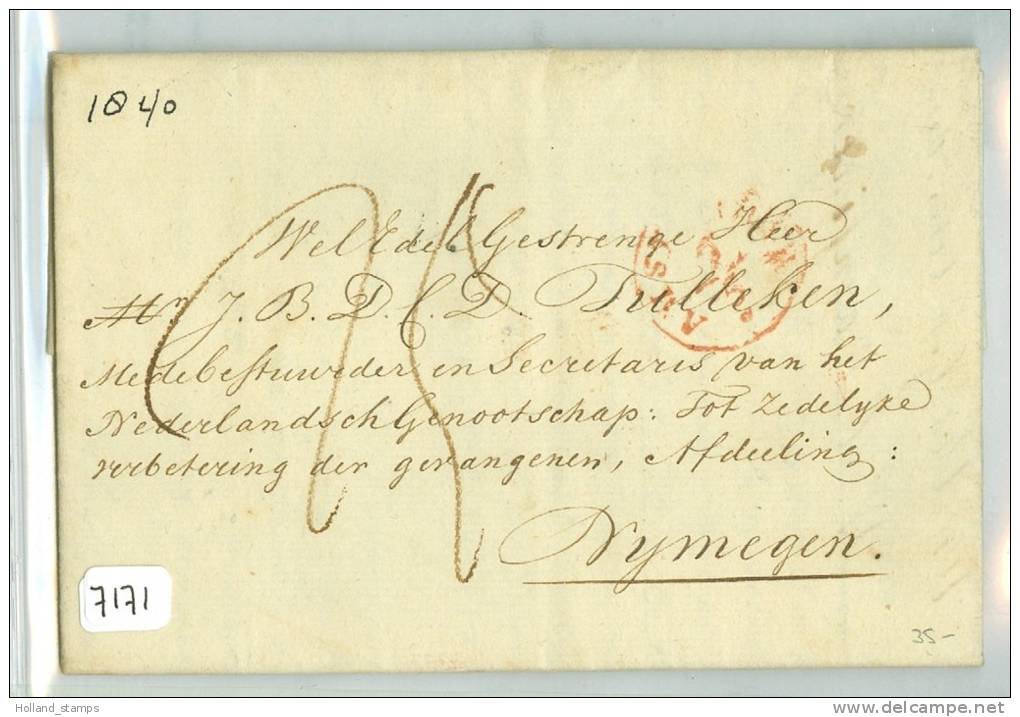 1840
Wel Edel Gestrenge Heer
Mr J. B. D. C. D. Tulleken,
Medebestuurder en Secretaris van het
Nederlandsch Genootschap: Tot Zedelyke
verbetering der gevangenen, Afdeeling:
Nymegen.
7171
35-
Holland_stamps
www.delcampe.net